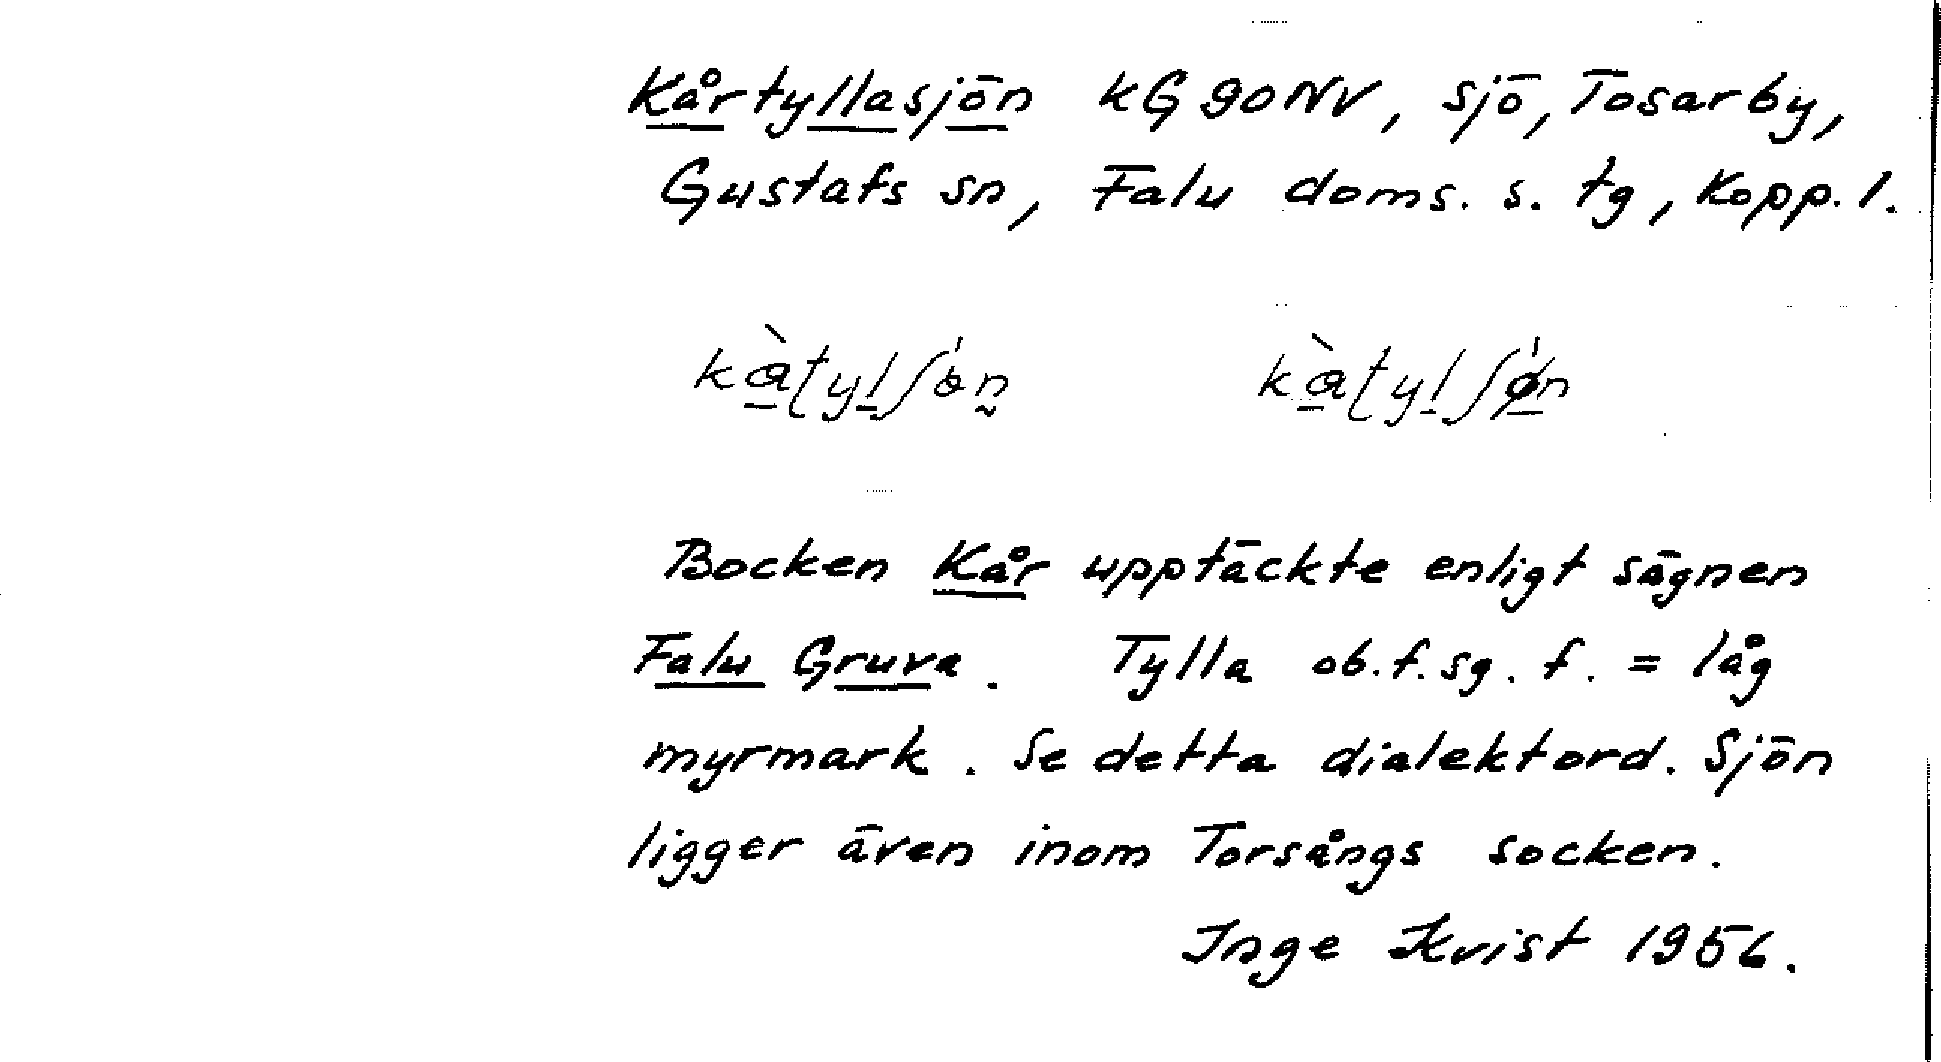 Kårtyllasjön kG 90 NV, sjö, Tosarby,
Gustafs sn, Falu doms. s. tg, Kopp. l.
Bocken Kår upptäckte enligt sägnen
Falu Gruva. Tylla ob.f.sg. f. = låg
myrmark. Se detta dialektord. Sjön
ligger även inom Torsångs socken.
Inge Kvist 1956.